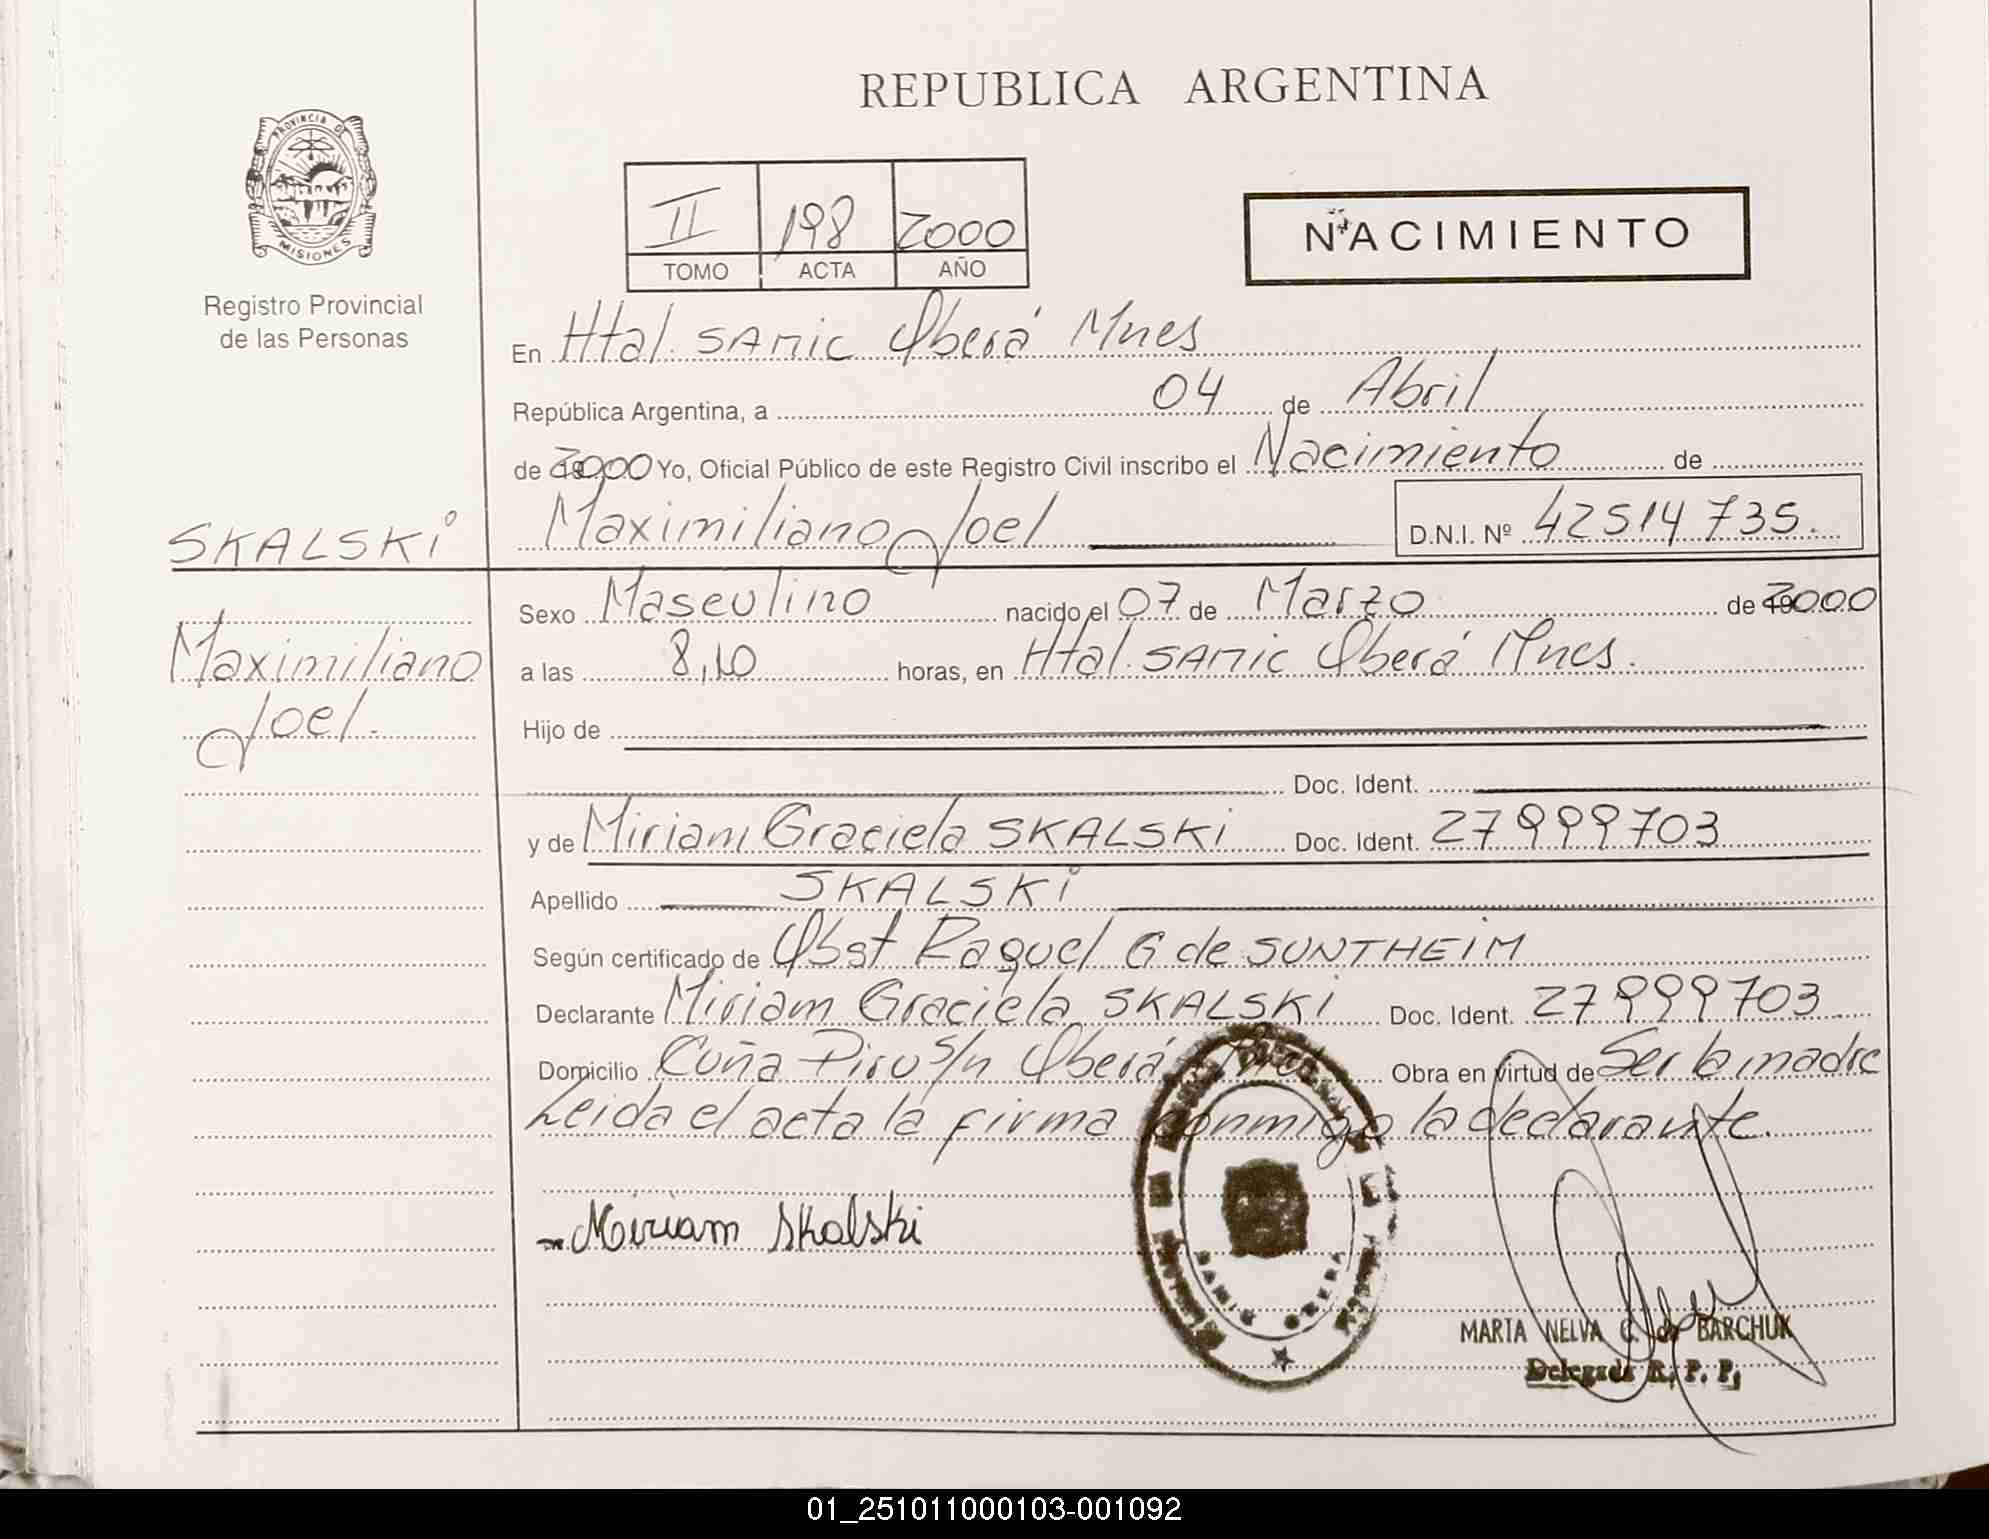 REPUBLICA ARGENTINA
PROVINCIA DE
MISIONES
Registro Provincial
de las Personas
II 198 2000
TOMO ACTA AÑO
NACIMIENTO
En Htal. SAMIC Oberá Mnes
República Argentina, a 04 de Abril
de 2000 Yo, Oficial Público de este Registro Civil inscribo el Nacimiento de
SKALSKi
Maximiliano Joel
D.N.I. Nº 42514735.
Maximiliano
Joel.
Sexo Masculino nacido el 07 de Marzo de 2000
a las 8,10 horas, en Htal. SAMIC Oberá Mnes.
Hijo de
Doc. Ident.
y de Miriam Graciela SKALSKi Doc. Ident. 27999703
Apellido SKALSKi
Según certificado de Obst Raquel G de SUNTHEiM
Declarante Miriam Graciela SKALSKi Doc. Ident. 27999703
Domicilio Cuña Piru s/n Oberá Obra en virtud de Ser la madre
Leida el acta la firma conmigo la declarante.
Miriam Skalski
SAMIC OBERA
MARTA NELVA C. de BARCHUK
Delegada R. P. P.
01_251011000103-001092